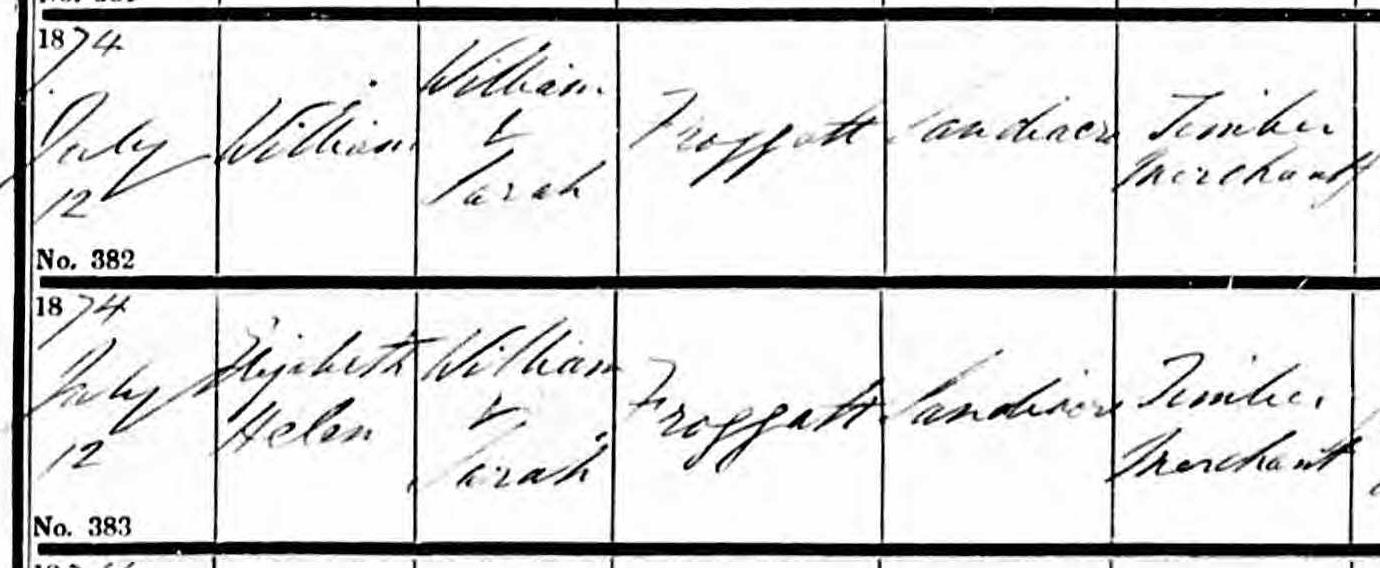 1874
July
12
William
William
&
Sarah
Froggatt
Sandiacre
Timber
Merchant
No. 382
1874
July
12
Elizabeth
Helen
William
&
Sarah
Froggatt
Sandiacre
Timber
Merchant
No. 383